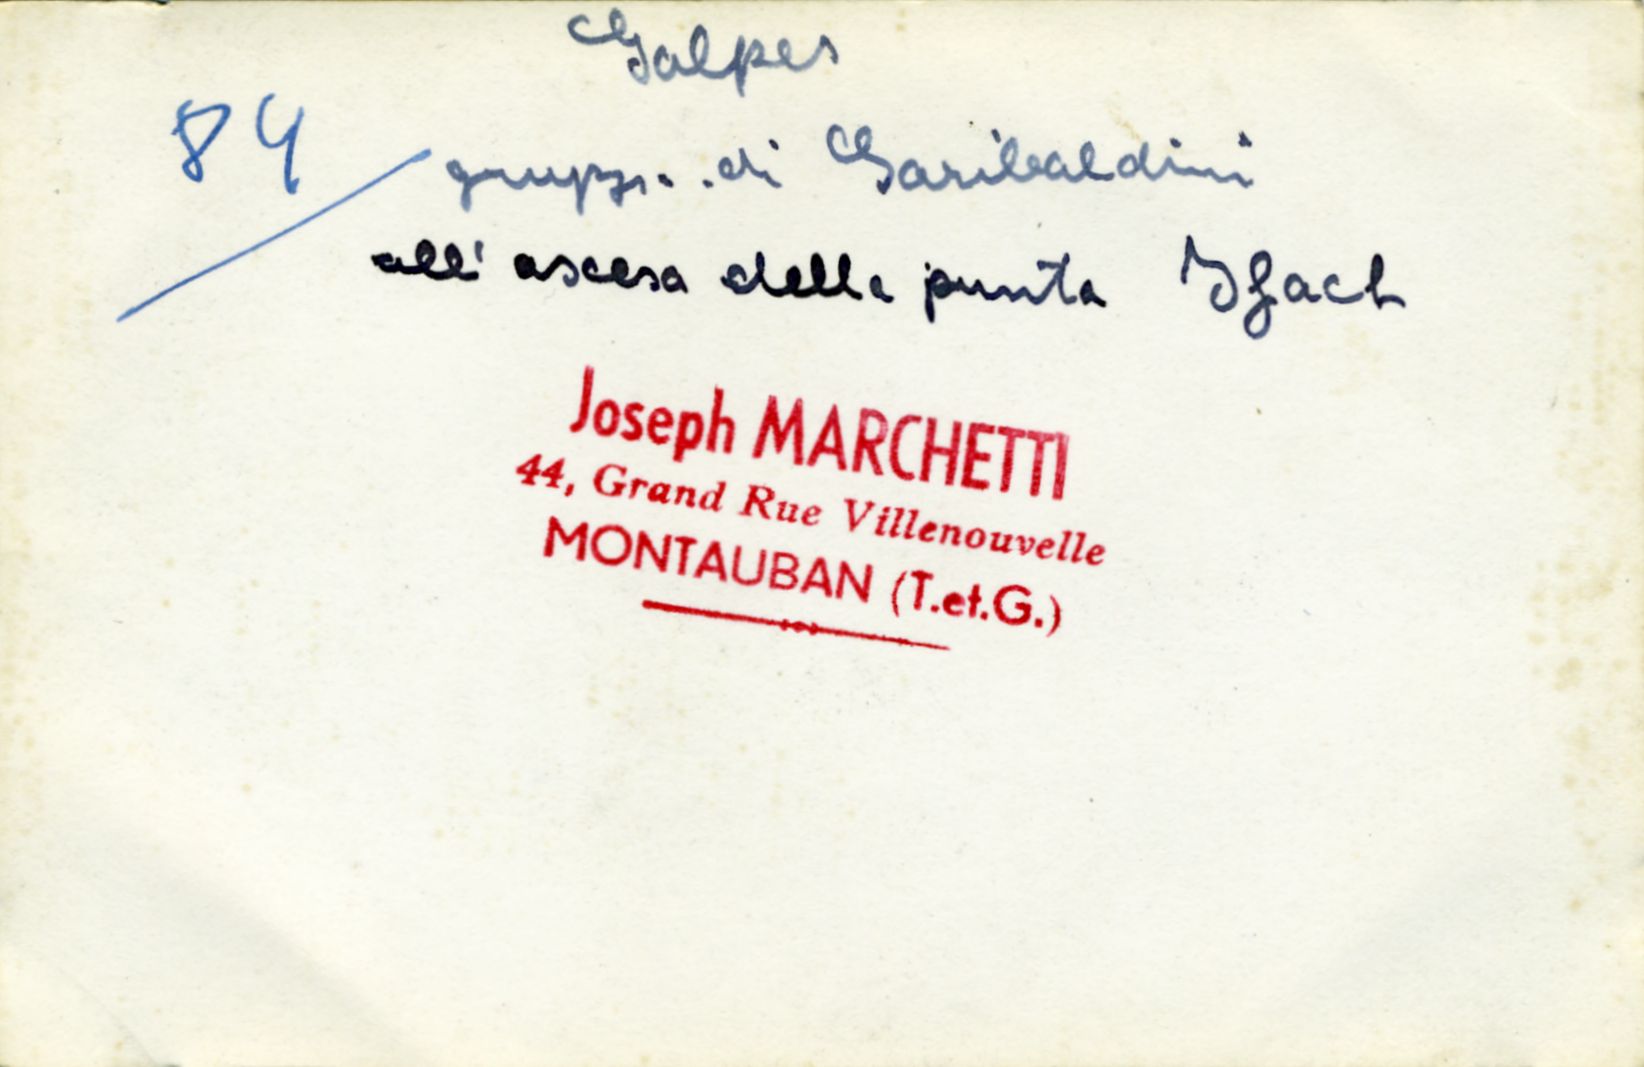 Galpes
84
gruppo di Garibaldini
all'ascesa della punta Ifach
Joseph MARCHETTI
44, Grand Rue Villenouvelle
MONTAUBAN (T.et.G.)